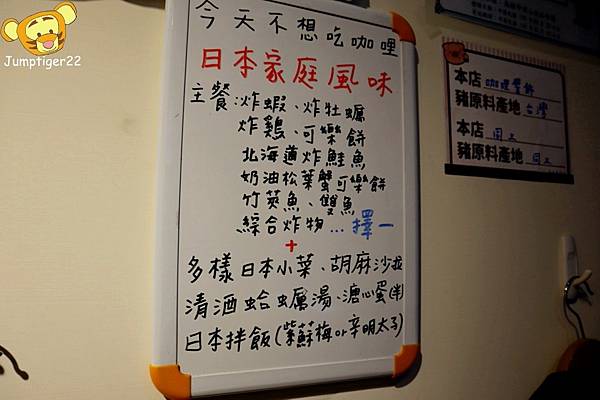 Jumptiger22
今天不想吃咖哩
日本家庭風味
主餐:炸蝦、炸牡蠣
炸雞、可樂餅
北海道炸鮭魚
奶油松葉蟹可樂餅
竹筴魚、雙魚
綜合炸物...擇一
+
多樣日本小菜、胡麻沙拉
清酒蛤蠣湯、溏心蛋(半)
日本拌飯(紫蘇梅or辛明太子)
本店 咖哩餐飲
豬原料產地 台灣
本店 同上
豬原料產地 同上